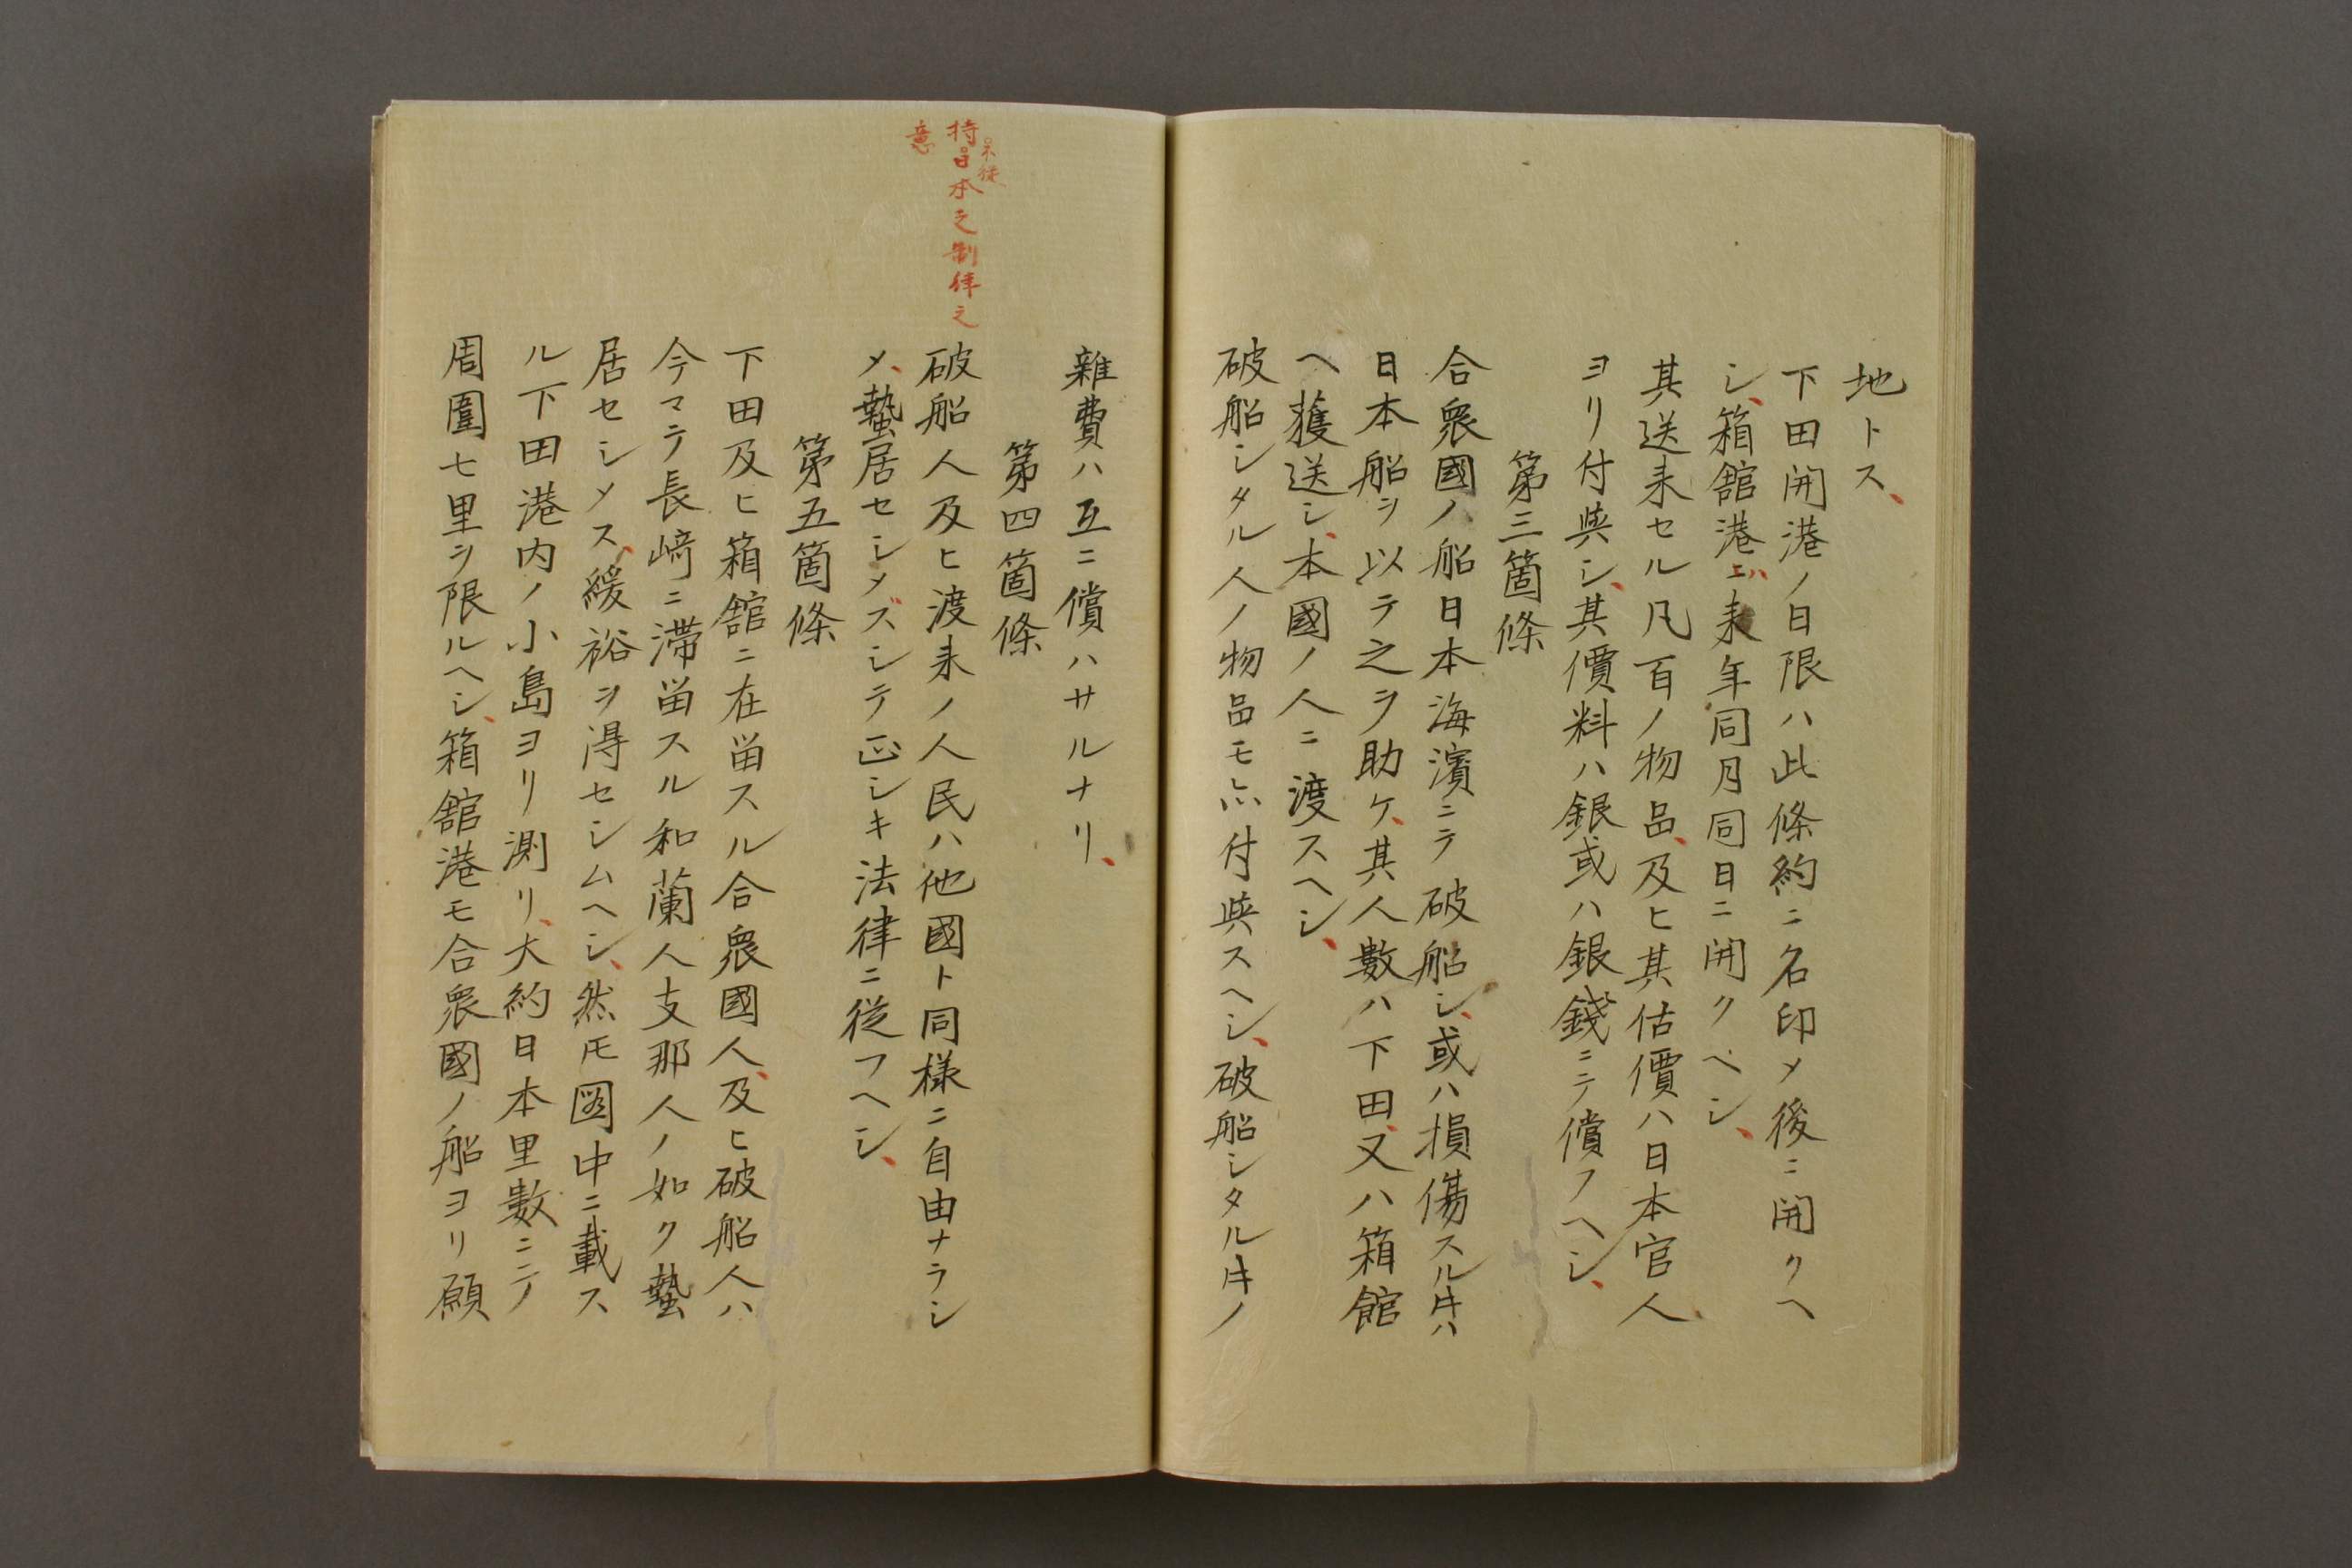 地トス、
下田開港ノ日限ハ此條約ニ名印〆後ニ開クヘ
シ、箱舘港ハ来年同月同日ニ開クヘシ、
其送来セル凡百ノ物品、及ヒ其估價ハ日本官人
ヨリ付與シ、其價料ハ銀或ハ銀錢ニテ償フヘシ、
第三箇條
合衆國ノ船日本海濱ニテ破船シ、或ハ損傷スル𪜈ハ
日本船ヲ以テ之ヲ助ケ、其人數ハ下田、又ハ箱館
ヘ護送シ、本國ノ人ニ渡スヘシ、
破船シタル人ノ物品モ亦付與スヘシ、破船シタル𪜈ノ
雜費ハ互ニ償ハサルナリ、
第四箇條
破船人及ヒ渡来ノ人民ハ他國ト同様ニ自由ナラシ
メ、蟄居セシメズシテ正シキ法律ニ従フヘシ、
持日本之制律之
不従
意
第五箇條
下田及ヒ箱舘ニ在畄スル合衆國人、及ヒ破船人ハ
今マテ長﨑ニ滞畄スル和蘭人支那人ノ如ク蟄
居セシメス、緩裕ヲ淂セシムヘシ、然𪜈圖中ニ載ス
ル下田港内ノ小島ヨリ測リ、大約日本里數ニテ
周圍七里ヲ限ルヘシ、箱舘港モ合衆國ノ船ヨリ願